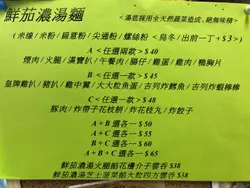 鮮茄濃湯麵
<湯底採用全天然蔬菜造成,絕無味精>
(米線/米粉/扁意粉/尖通粉/螺絲粉 <烏冬/出前一丁+$3>)
A <任選兩款> $40
煙肉/火腿/漢寶扒/午餐肉/腸仔/雞蛋/雞肉/鴨胸片
B <任選一款> $45
皇牌雞扒/豬扒/雞中翼/大大粒魚蛋/吉列炸魷魚/吉列炸蝦棒棒
C <任選一款> $48
豚肉/炸帶子花枝餅/炸花枝丸/炸餃子
A+B 選各一 $50
A+C 選各一 $55
B+C 選各一 $60
A+B+C 選各一 $65
鮮茄濃湯火腿餡花邊介子雲吞 $38
鮮茄濃湯芝士蔬菜餡大粒四方雲吞 $38